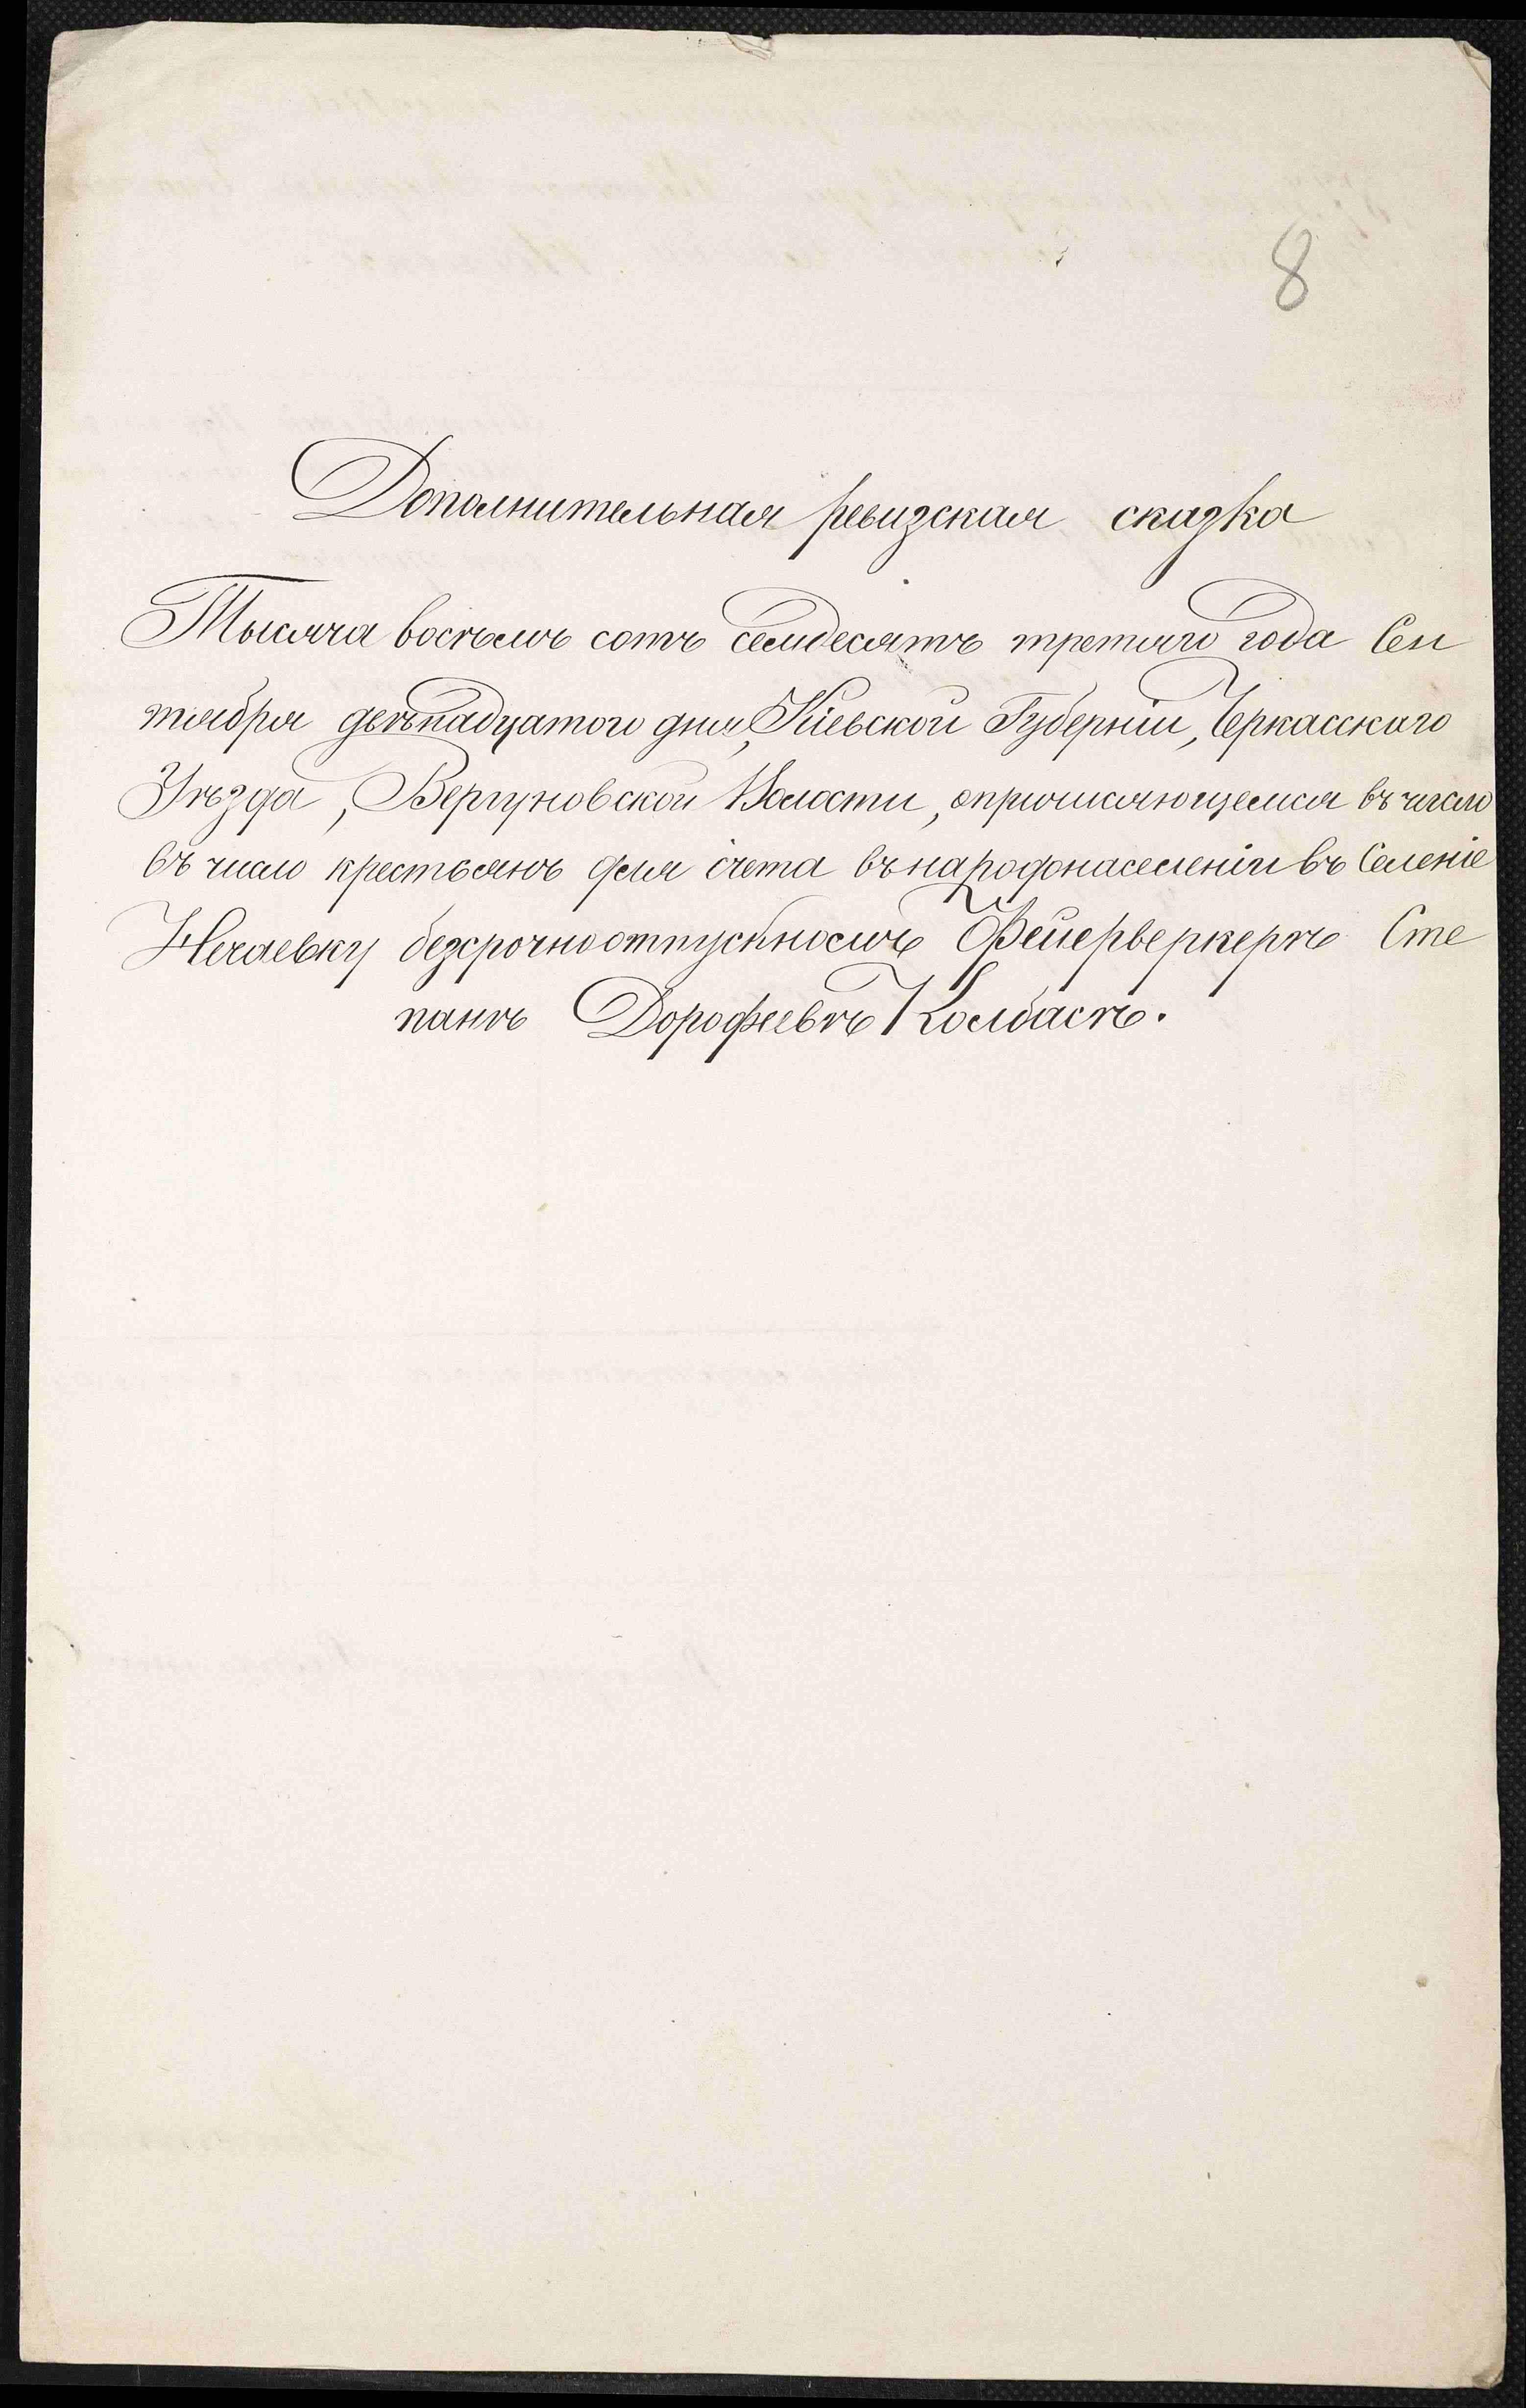 8
Дополнительная ревизская сказка
Тысяча восѣемъ сотъ семдесятъ третяго года Сен
тября двѣнадцатого дня, Кіевской Губерніи, Черкасскаго
Уѣзда, Вергуновской Волости, опричисляющемся въ число
въ число крестьянъ для счета въ народонаселеніи въ Селеніе
Нечаевку безсрочноотпускномъ Фейерверкерѣ Сте
панѣ Дорофеевѣ Колбасѣ.